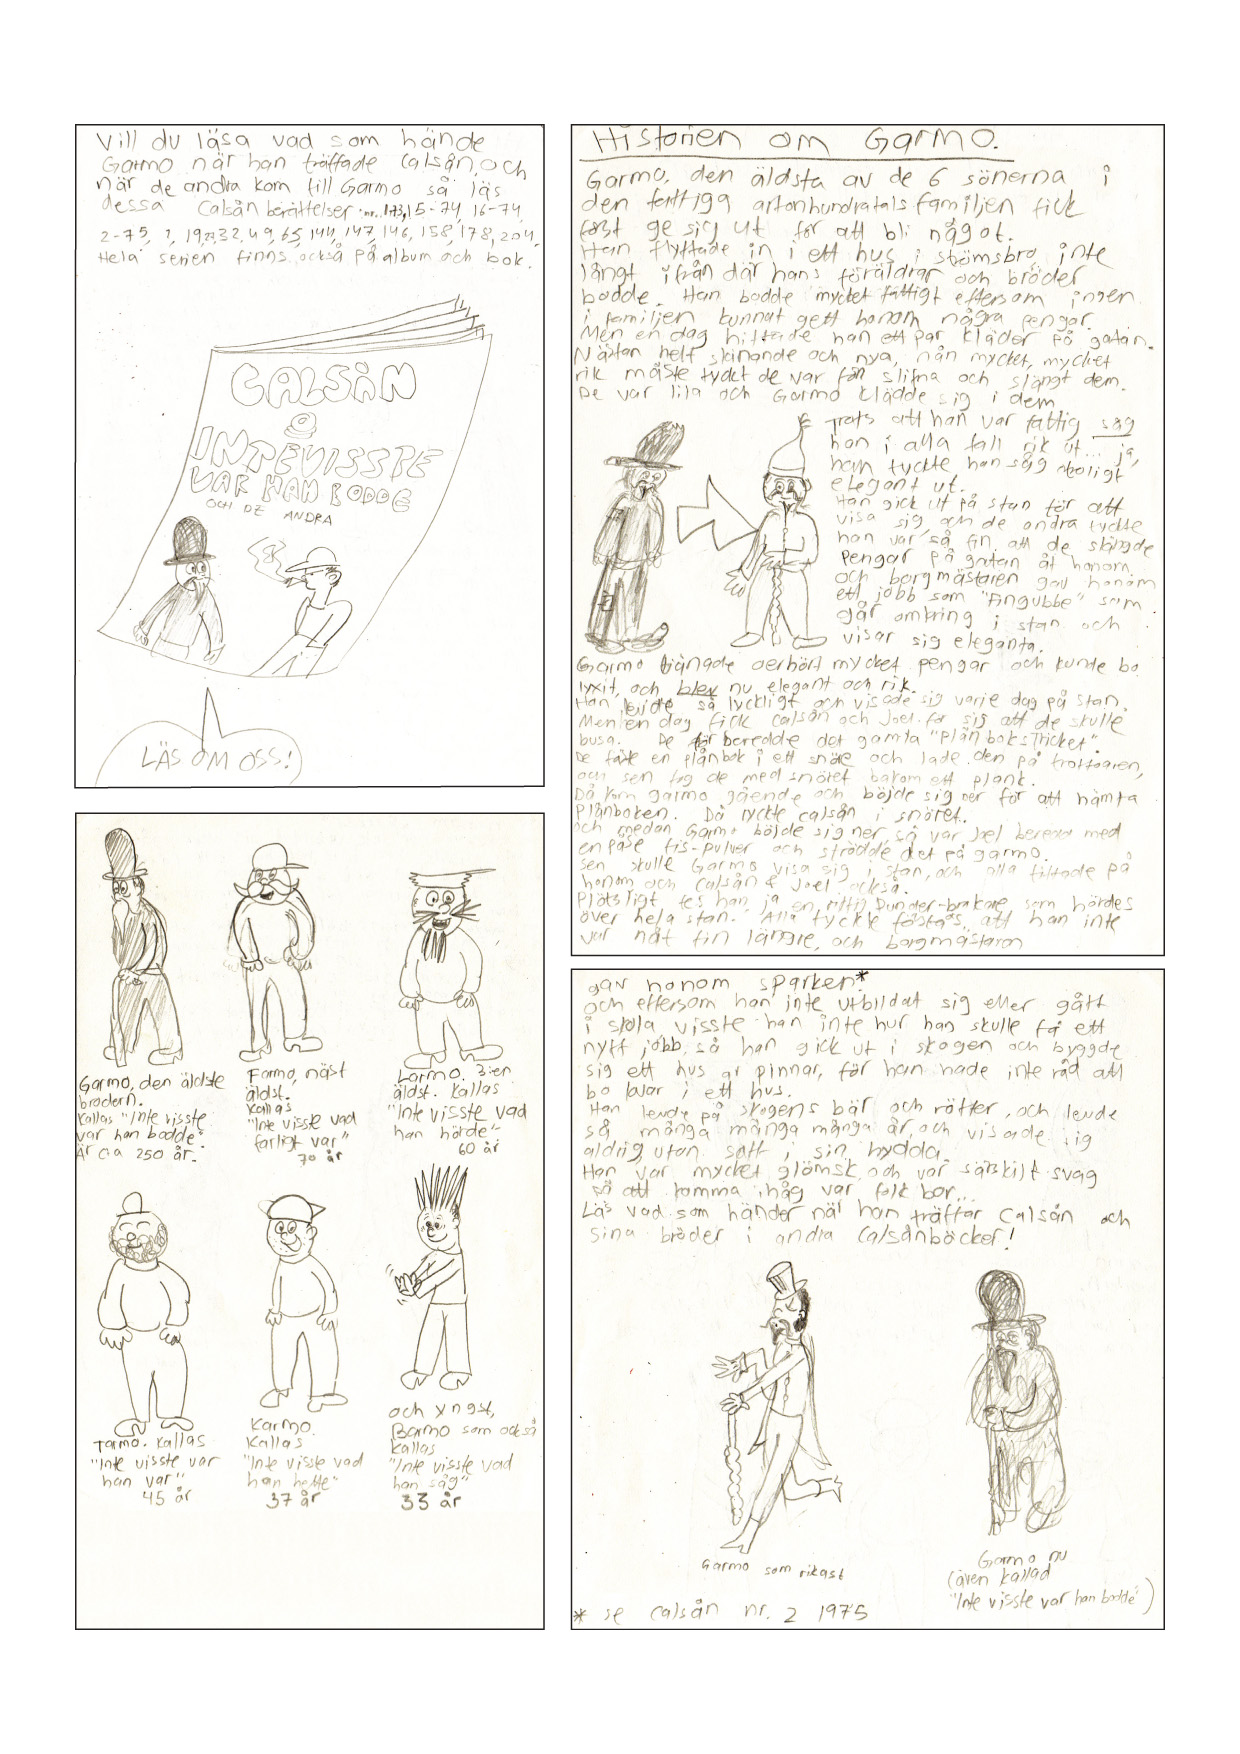 Vill du läsa vad som hände
Garmo när han träffade Calsån, och
när de andra kom till Garmo så läs
dessa Calsån berättelser: nr. 173, 15-74, 16-74,
2-75, 1, 19, 27, 32, 49, 65, 144, 147, 146, 158, 178, 204.
Hela serien finns också på album och bok.
CALSÅN
&
INTEVISSTE
VAR HAN BODDE
OCH DE ANDRA
LÄS OM OSS!
Garmo, den äldste
brodern.
Kallas "Inte visste
var han bodde".
Är ca 250 år.
Farmo, näst
äldst.
Kallas
"Inte visste vad
farligt var"
70 år
Larmo. 3:en
äldst. Kallas
"Inte visste vad
han hörde"
60 år
Tarmo. Kallas
"Inte visste var
han var"
45 år
Karmo.
Kallas
"Inte visste vad
han hette"
37 år
och yngst,
Barmo som också
kallas
"Inte visste vad
han såg"
33 år
Historien om Garmo.
Garmo, den äldsta av de 6 sönerna i
den fattiga artonhundratals familjen fick
först ge sig ut för att bli något.
Han flyttade in i ett hus i strömsbro, inte
långt ifrån där hans föräldrar och bröder
bodde. Han bodde mycket fattigt eftersom ingen
i familjen kunnat gett honom några pengar.
Men en dag hittade han ett par kläder på gatan.
Nästan helt skinande och nya, nån mycket, mycket
rik måste tyckt de var för slitna och slängt dem.
De var lila och Garmo klädde sig i dem
Trots att han var fattig såg
han i alla fall rik ut... ja,
han tyckte han såg otroligt
elegant ut.
Han gick ut på stan för att
visa sig, och de andra tyckte
han var så fin att de slängde
pengar på gatan åt honom
och borgmästaren gav honom
ett jobb som "Fingubbe" som
går omkring i stan och
visar sig eleganta.
Garmo tjänade oerhört mycket pengar och kunde bo
lyxit, och blev nu elegant och rik.
Han levde så lyckligt och visade sig varje dag på stan.
Men en dag fick Calsån och Joel för sig att de skulle
busa. De förberedde det gamla "Plånbokstricket".
De fäste en plånbok i ett snöre och lade den på trottoaren,
och sen tog de med snöret bakom ett plank.
Då kom garmo gående och böjde sig ner för att hämta
plånboken. Då ryckte calsån i snöret.
och medan Garmo böjde sig ner, så var Joel beredd med
en påse fis-pulver och strödde det på garmo.
sen skulle Garmo visa sig i stan, och alla tittade på
honom och Calsån & Joel också.
Plötsligt fes han, ja en riktig Dunder-brakare, som hördes
över hela stan. Alla tyckte förstås att han inte
var nåt fin längre, och borgmästaren
gav honom sparken*
och eftersom han inte utbildat sig eller gått
i skola visste han inte hur han skulle få ett
nytt jobb, så han gick ut i skogen och byggde
sig ett hus av pinnar, för han hade inte råd att
bo kvar i ett hus.
Han levde på skogens bär och rötter, och levde
så många många många år, och visade sig
aldrig, utan satt i sin hydda.
Han var mycket glömsk, och var särskilt svag
på att komma ihåg var folk bor...
Läs vad som händer när han träffar Calsån och
sina bröder i andra Calsånböcker!
Garmo som rikast
Garmo nu
(även kallad
"Inte visste var han bodde")
* se calsån nr. 2 1975